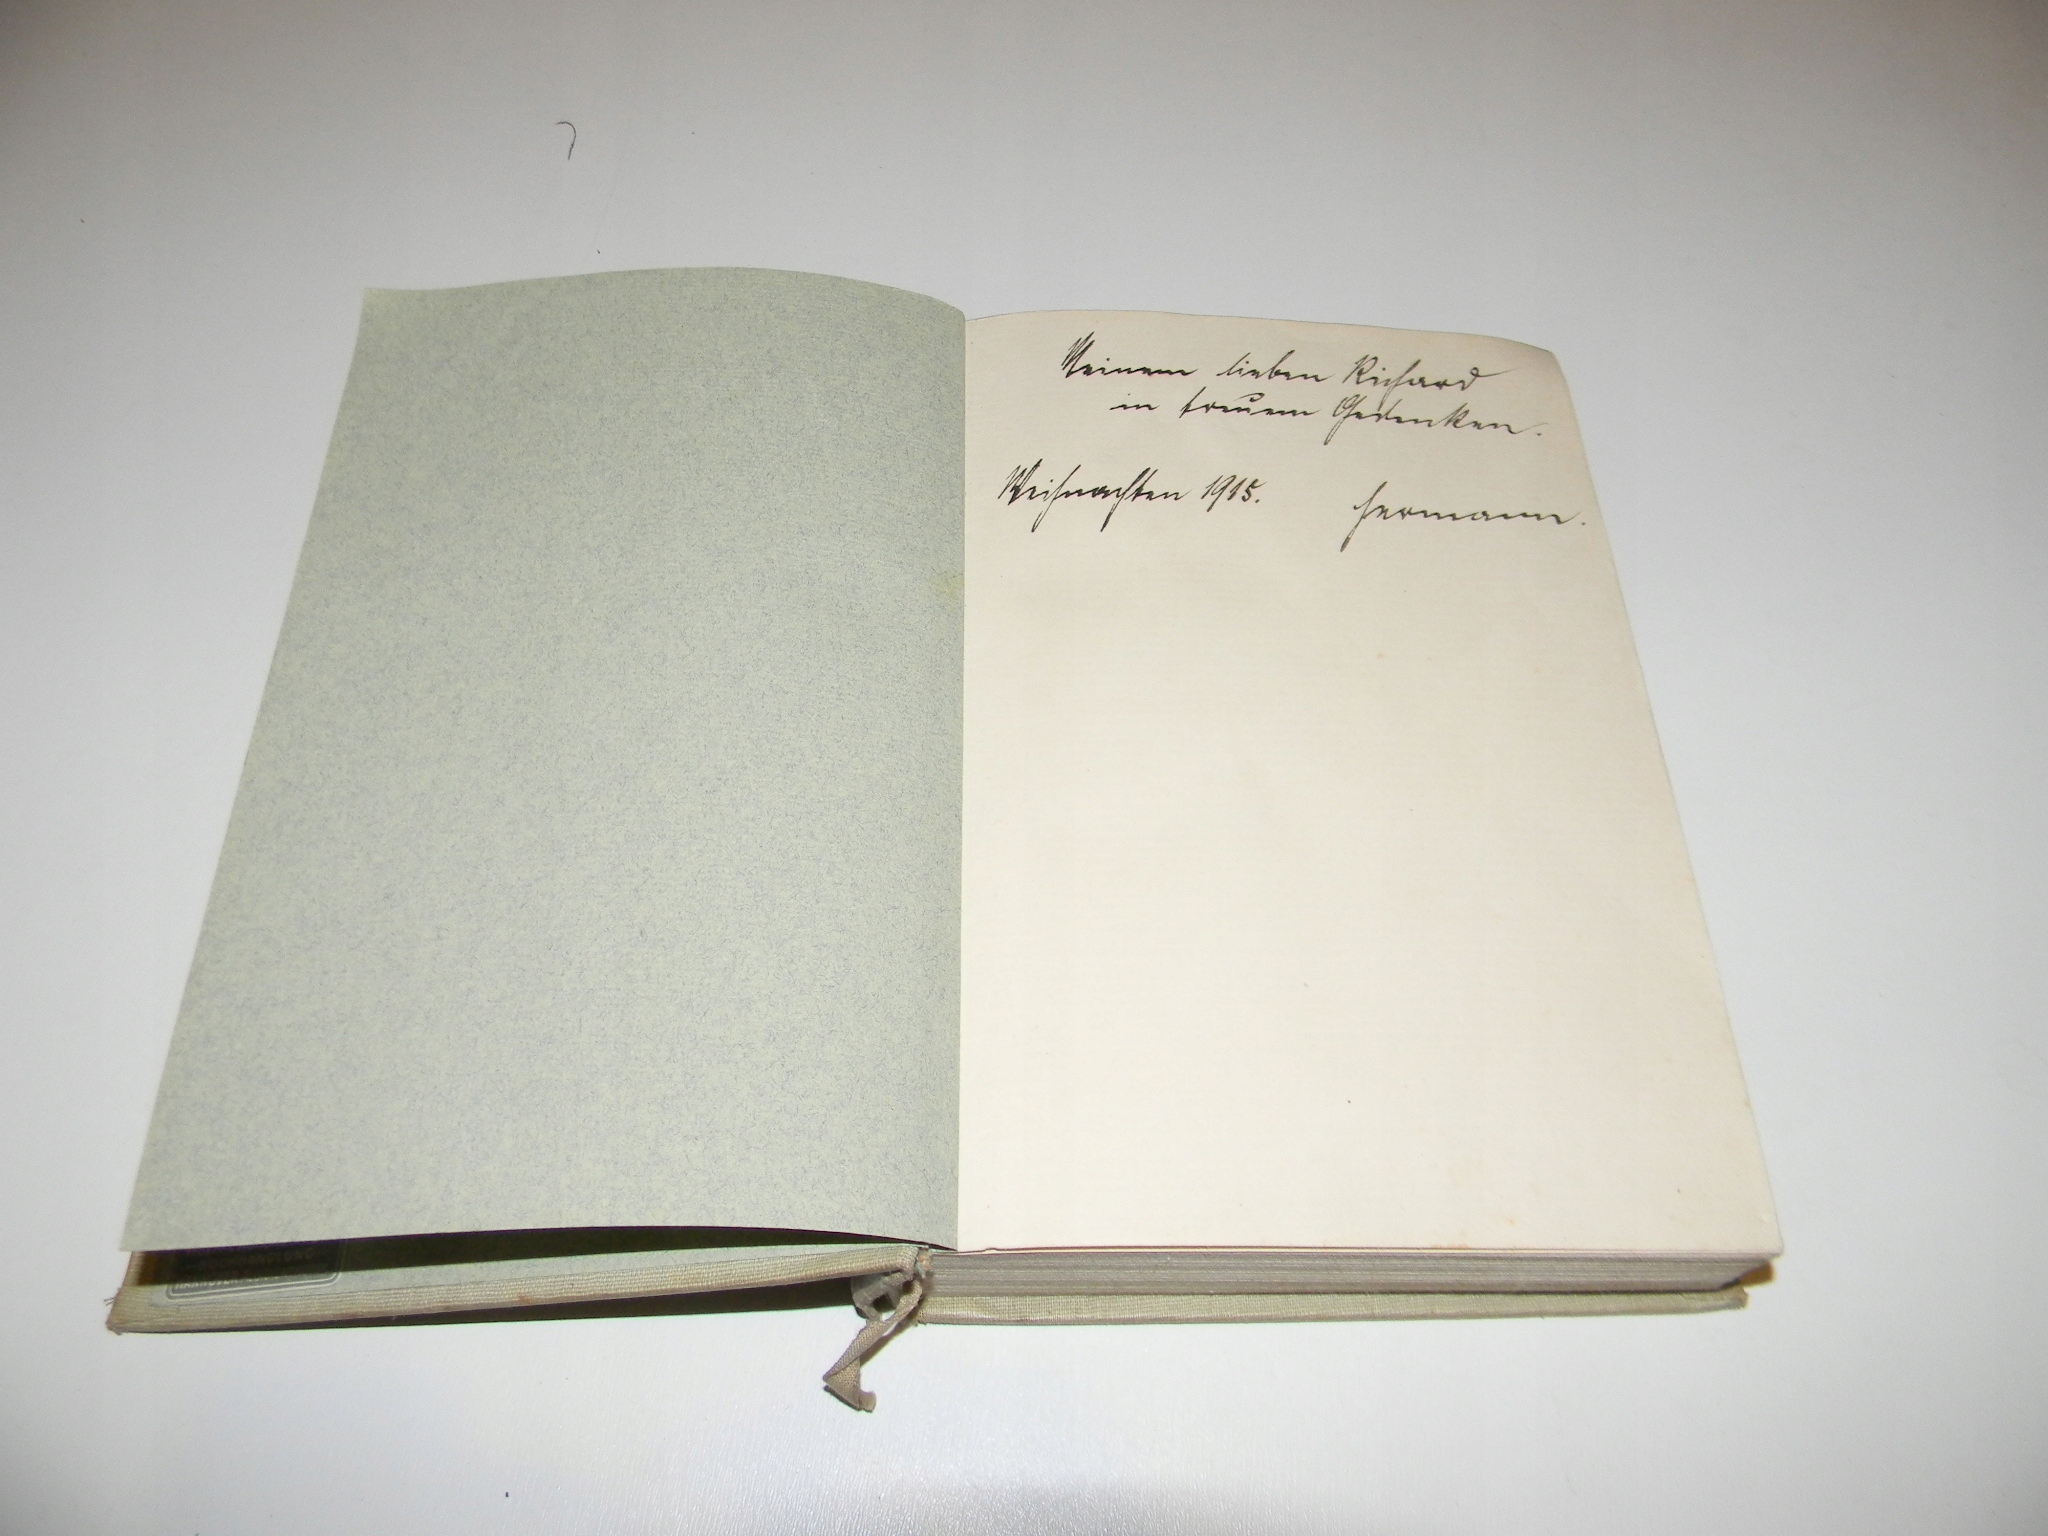 Meinem lieben Richard
in treuem Gedenken.
Weihnachten 1915. Hermann.